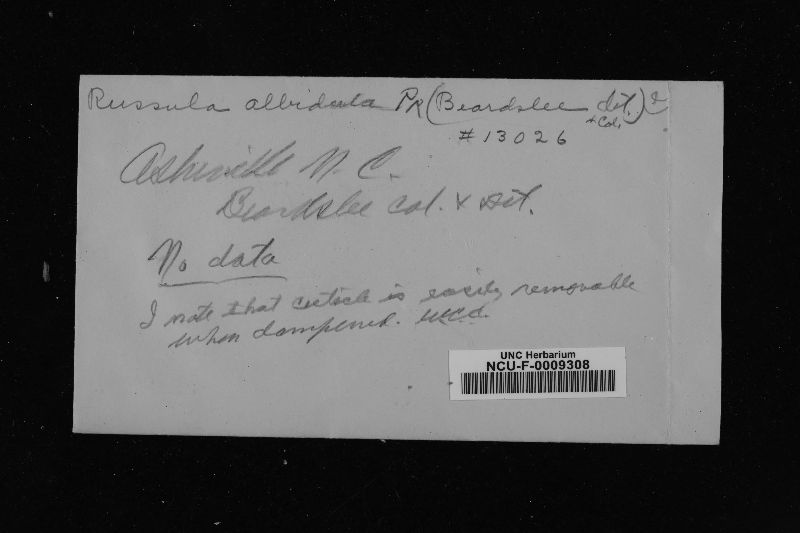 Russula albidula Pk (Beardslee det.)
+ Col.
# 13026
Asheville N. C.
Beardslee col. & det.
No data
I note that cuticle is easily removable
when dampened. WCC.
UNC Herbarium
NCU-F-0009308